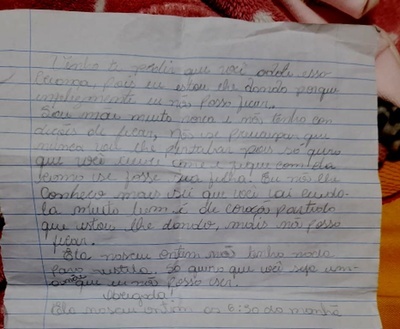 Venho te pedir que você adote essa
criança, pois eu estou lhe dando porque
simplesmente eu não posso ficar.
Sou mãe muito nova e não tenho con
dições de ficar, não se preocupar que
nunca vou lhe pertubar pois só quero
que você e fique com ela
como se fosse sua filha! Eu não lhe
conheço mais sei que você vai cuida-
la muito bem é de coração partido
que estou lhe dando, mais não posso
ficar.
Ela nasceu ontem não tenho nada
para vestila. Só quero que você seja uma
que eu não posso ser.
Obrigada!
Ela nasceu ontem as 6:30 da manhã